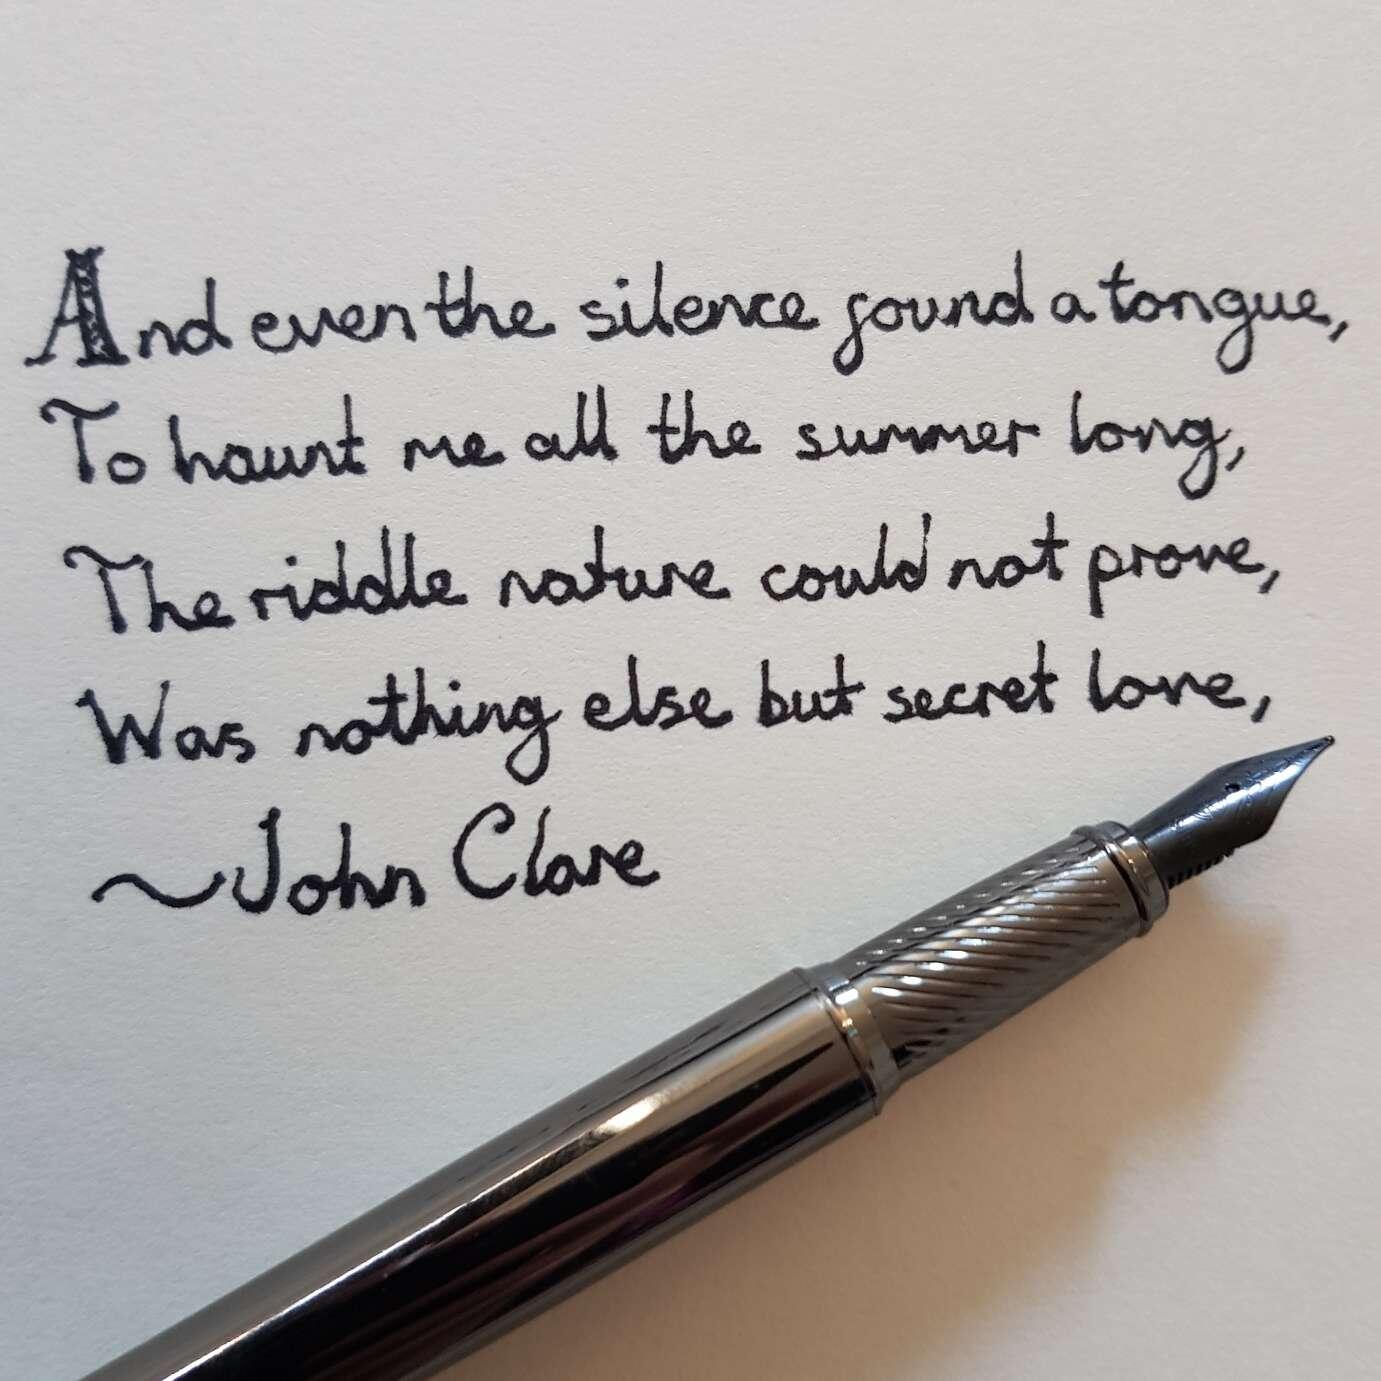 And even the silence found a tongue,
To haunt me all the summer long,
The riddle nature could not prove,
Was nothing else but secret love,
~John Clare